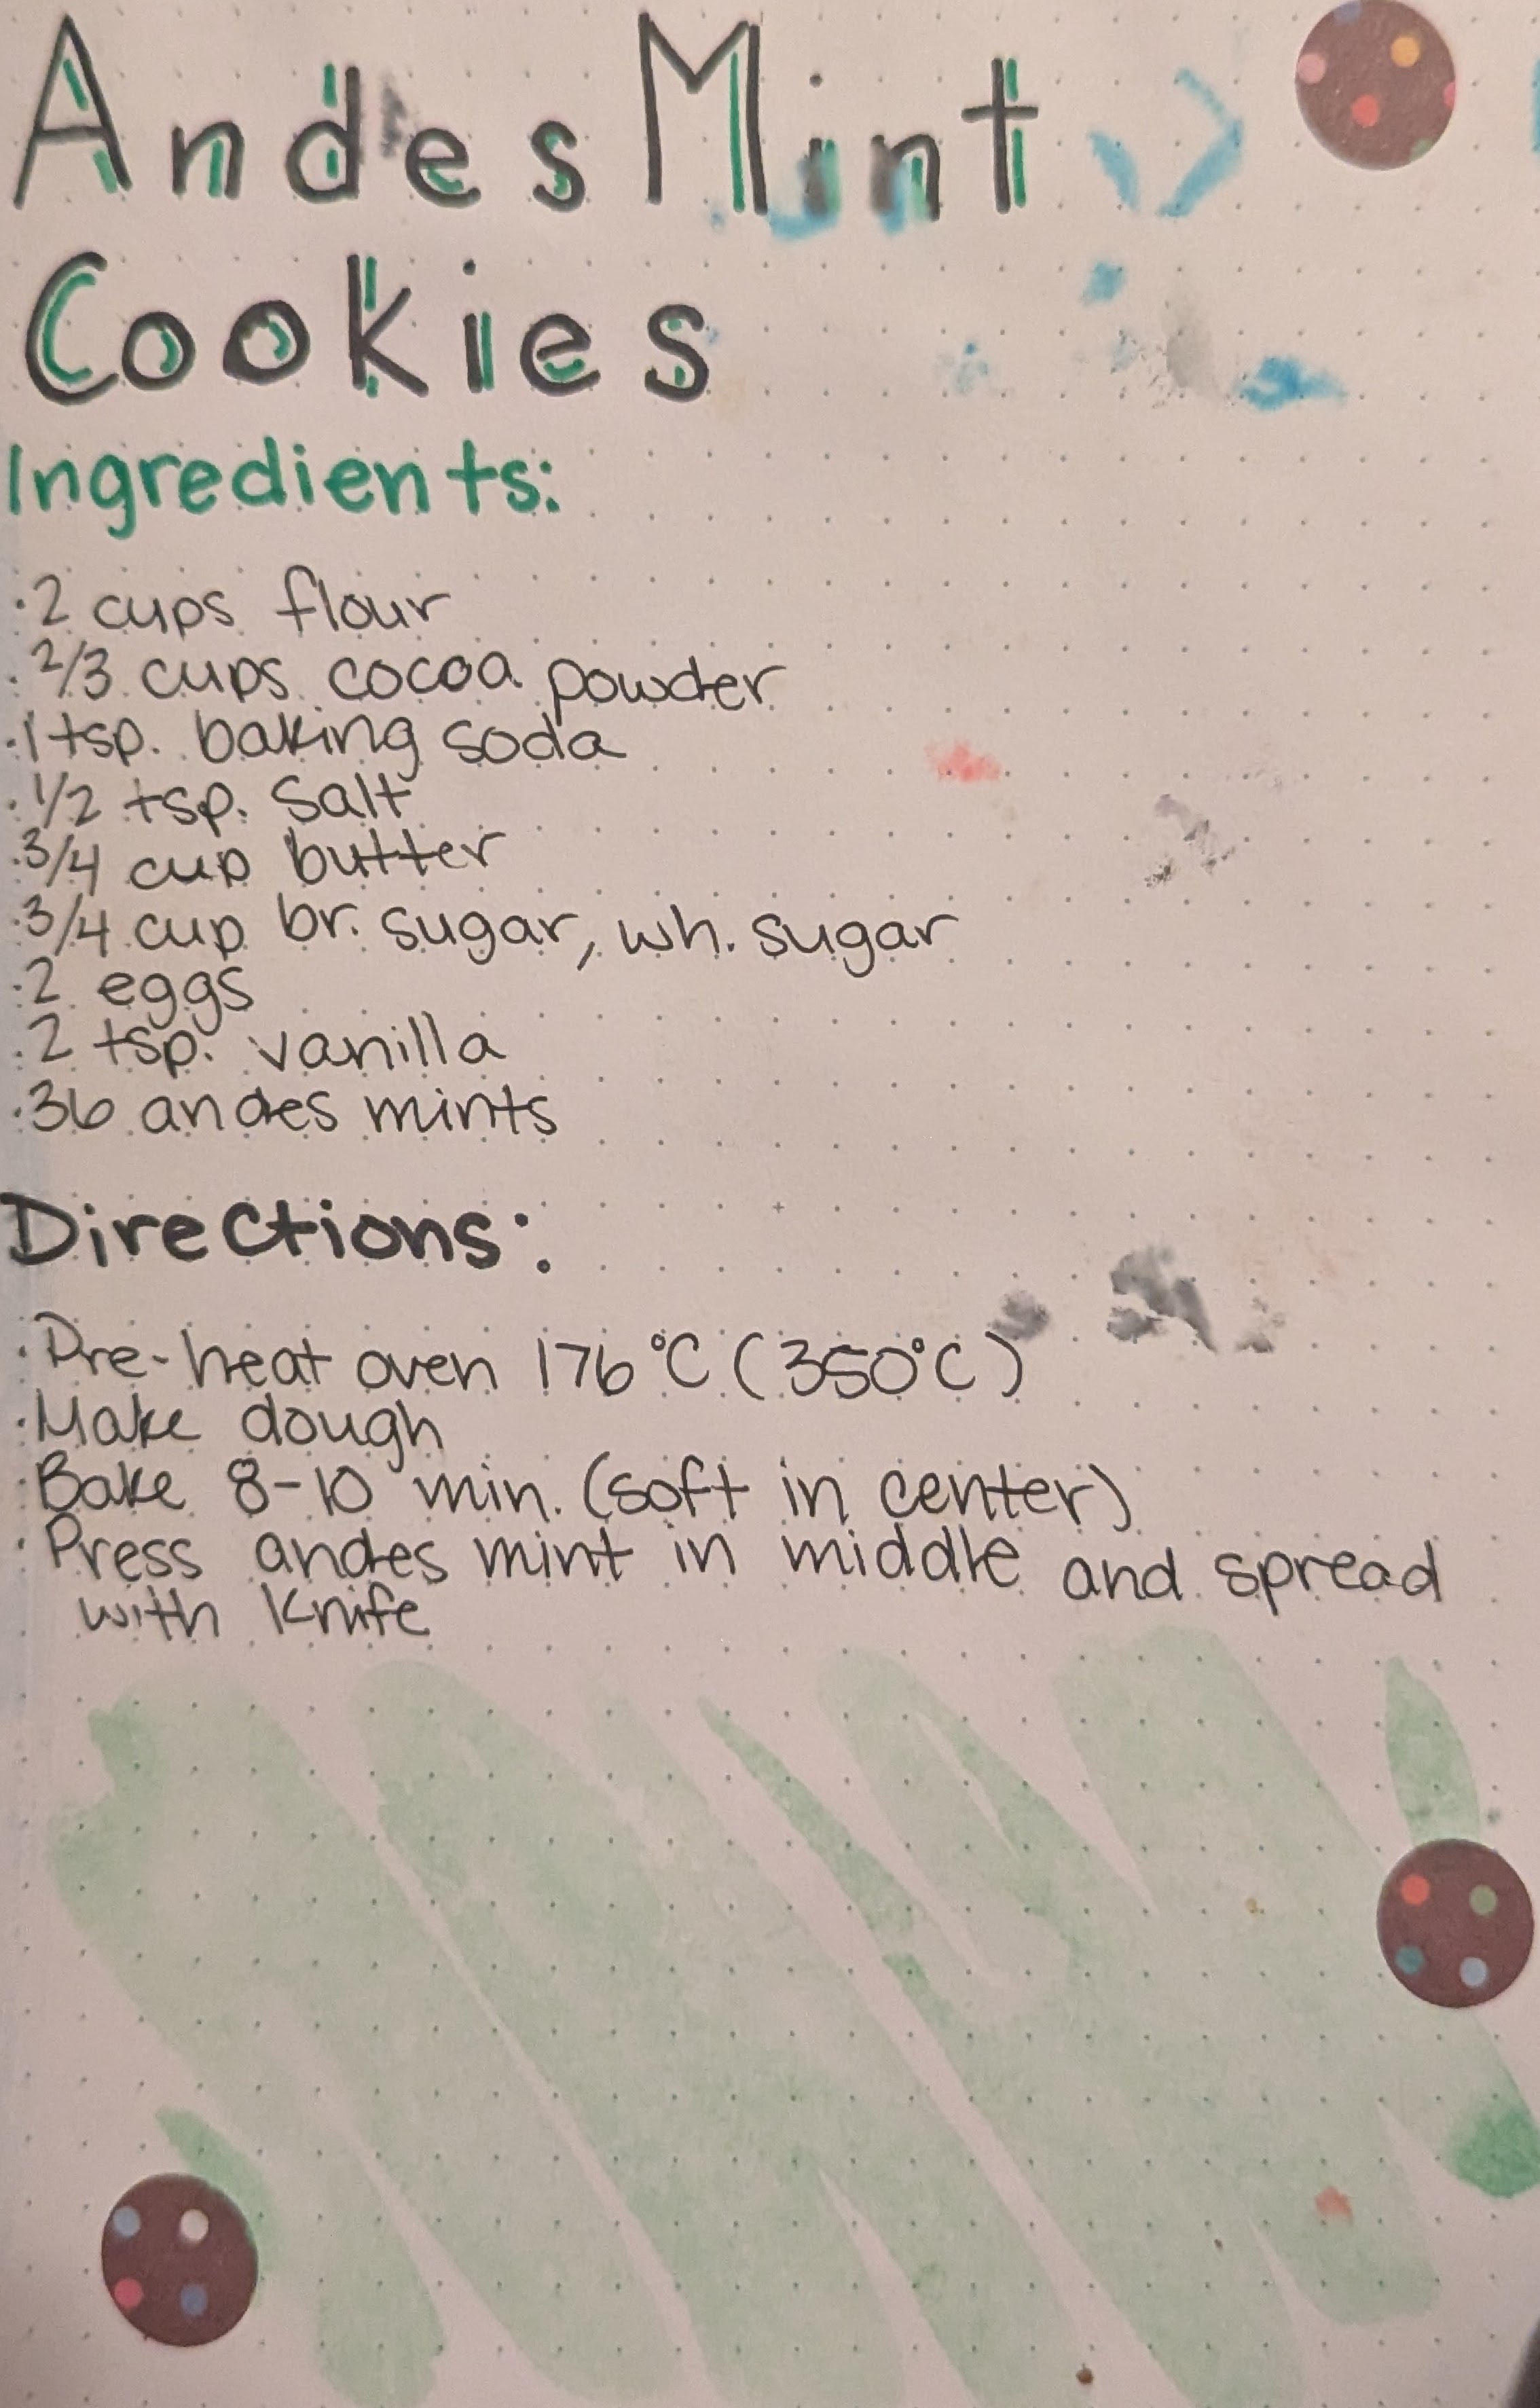 Andes Mint
Cookies
Ingredients:
· 2 cups flour
· 2/3 cups cocoa powder
· 1 tsp. baking soda
· 1/2 tsp. salt
· 3/4 cup butter
· 3/4 cup br. sugar, wh. sugar
· 2 eggs
· 2 tsp. vanilla
· 36 andes mints
Directions:
· Pre-heat oven 176°C (350°C)
· Make dough
· Bake 8-10 min. (soft in center)
· Press andes mint in middle and spread
with knife